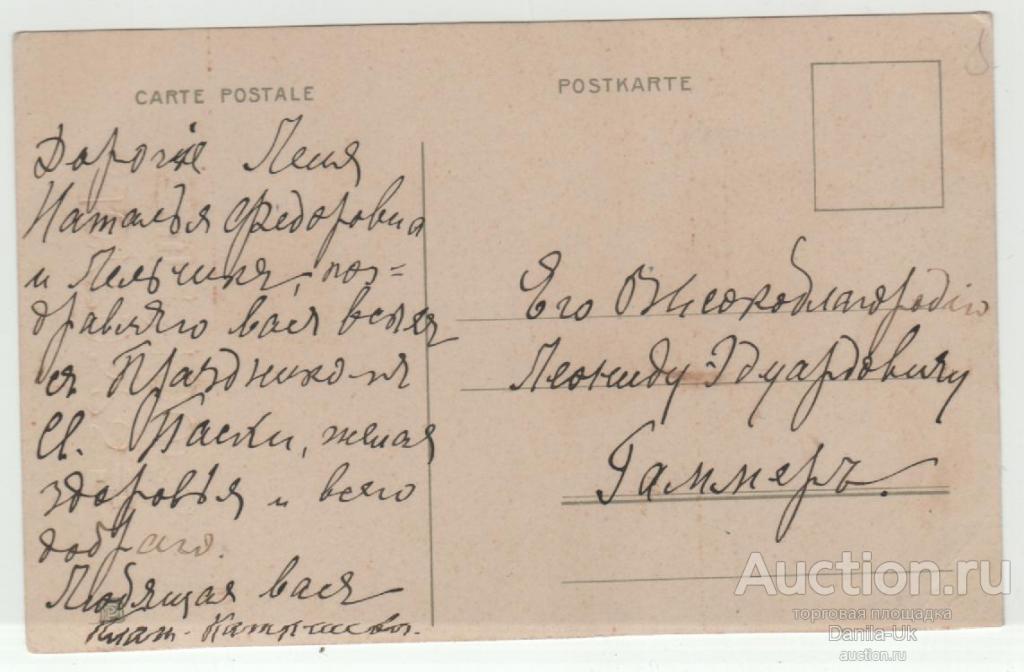 CARTE POSTALE
POSTKARTE
Дорогіе Леня
Наталья Федоровна
и Лельчикъ, поз=
дравляю васъ всѣхъ
съ Праздникомъ
Св. Пасхи, желая
здоровья и всего
добраго.
Любящая васъ
Его Высокоблагородію
Леониду Эдуардовичу
Гаммеръ.
Auction.ru
торговая площадка
Danila-Uk
auction.ru